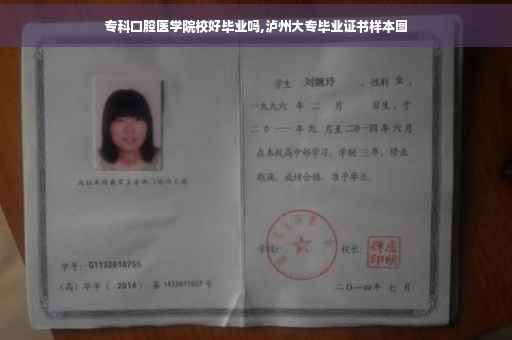 专科口腔医学院校好毕业吗,泸州大专毕业证书样本图
学生 刘婉玲 ，性别 女 ，
一九九六 年 二 月 日生，于
二〇一一年九 月至二〇一四年六月
在本校高中部学习，学制 三年，修业
期满，成绩合格，准予毕业。
学号： G1132010755
（高）毕字（ 2014 ）第 1432011027 号
学校： 校长：
二〇一四年 七 月